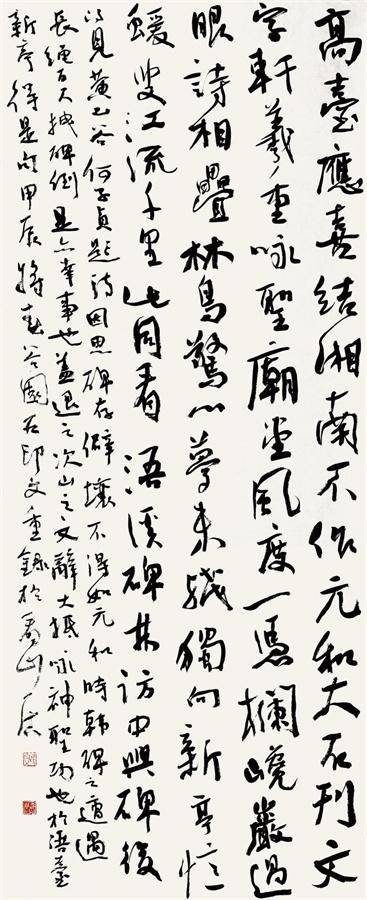 高臺應喜結湘南不作元和大石刊文
字軒羲重咏聖廟堂風度一憑欄巉巖過
眼詩相疊林鳥驚心夢未殘獨向新亭憶
叟江流千里此同看浯溪碑林訪中興碑後
得見黃山谷何子貞題詩因思碑存僻壤不得如元和時韓碑之遭遇
長繩百尺拽碑倒是亦幸事也蓋退之次山之文辭大抵咏神聖功也於浯臺
新亭得是咏甲辰將春谷國石印文重錄於看山居